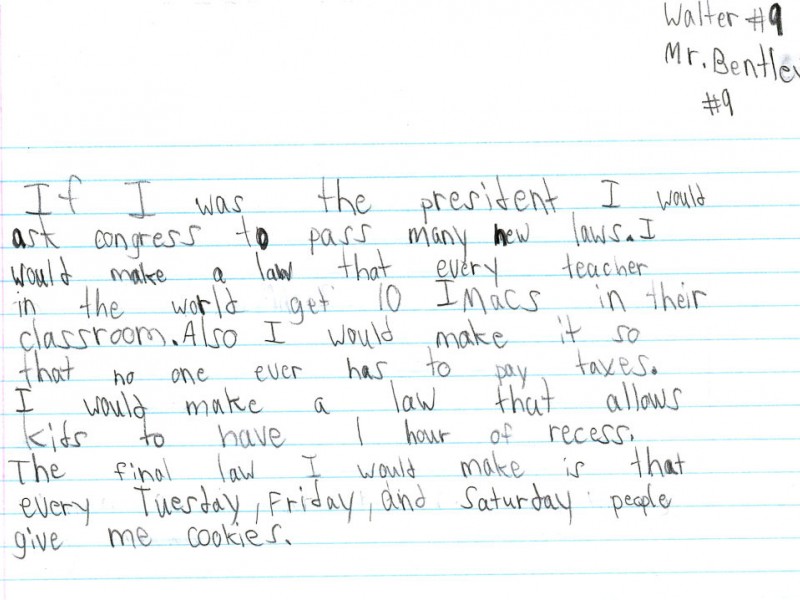 Walter #9
Mr. Bentley
#9
If I was the president I would
ask congress to pass many new laws. I
would make a law that every teacher
in the world get 10 IMacs in their
classroom. Also I would make it so
that no one ever has to pay taxes.
I would make a law that allows
kids to have 1 hour of recess.
The final law I would make is that
every Tuesday, Friday, and Saturday people
give me cookies.